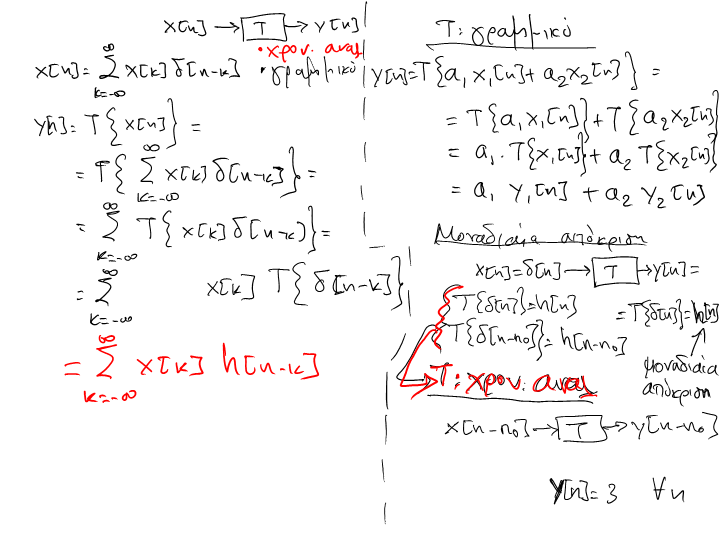 x[n] → T → y[n]
• χρον. αναλ
• γραμμικό
x[n] = ∞ Σ k=-∞ x[k] δ[n-k]
y[n] = T{x[n]} =
= T{ ∞ Σ k=-∞ x[k] δ[n-k]} =
= ∞ Σ k=-∞ T{x[k] δ[n-k]} =
= ∞ Σ k=-∞ x[k] T{δ[n-k]}
= ∞ Σ k=-∞ x[k] h[n-k]
T: γραμμικό
y[n] = T{a₁ x₁[n] + a₂ x₂[n]} =
= T{a₁ x₁[n]} + T{a₂ x₂[n]}
= a₁ · T{x₁[n]} + a₂ T{x₂[n]}
= a₁ y₁[n] + a₂ y₂[n]
Μοναδιαία απόκριση
x[n] = δ[n] → T → y[n] =
= T{δ[n]} = h[n]
T{δ[n]} = h[n]
T{δ[n-n₀]} = h[n-n₀]
μοναδιαία
απόκριση
T: χρον. αναλ
x[n-n₀] → T → y[n-n₀]
y[n] = 3 ∀n